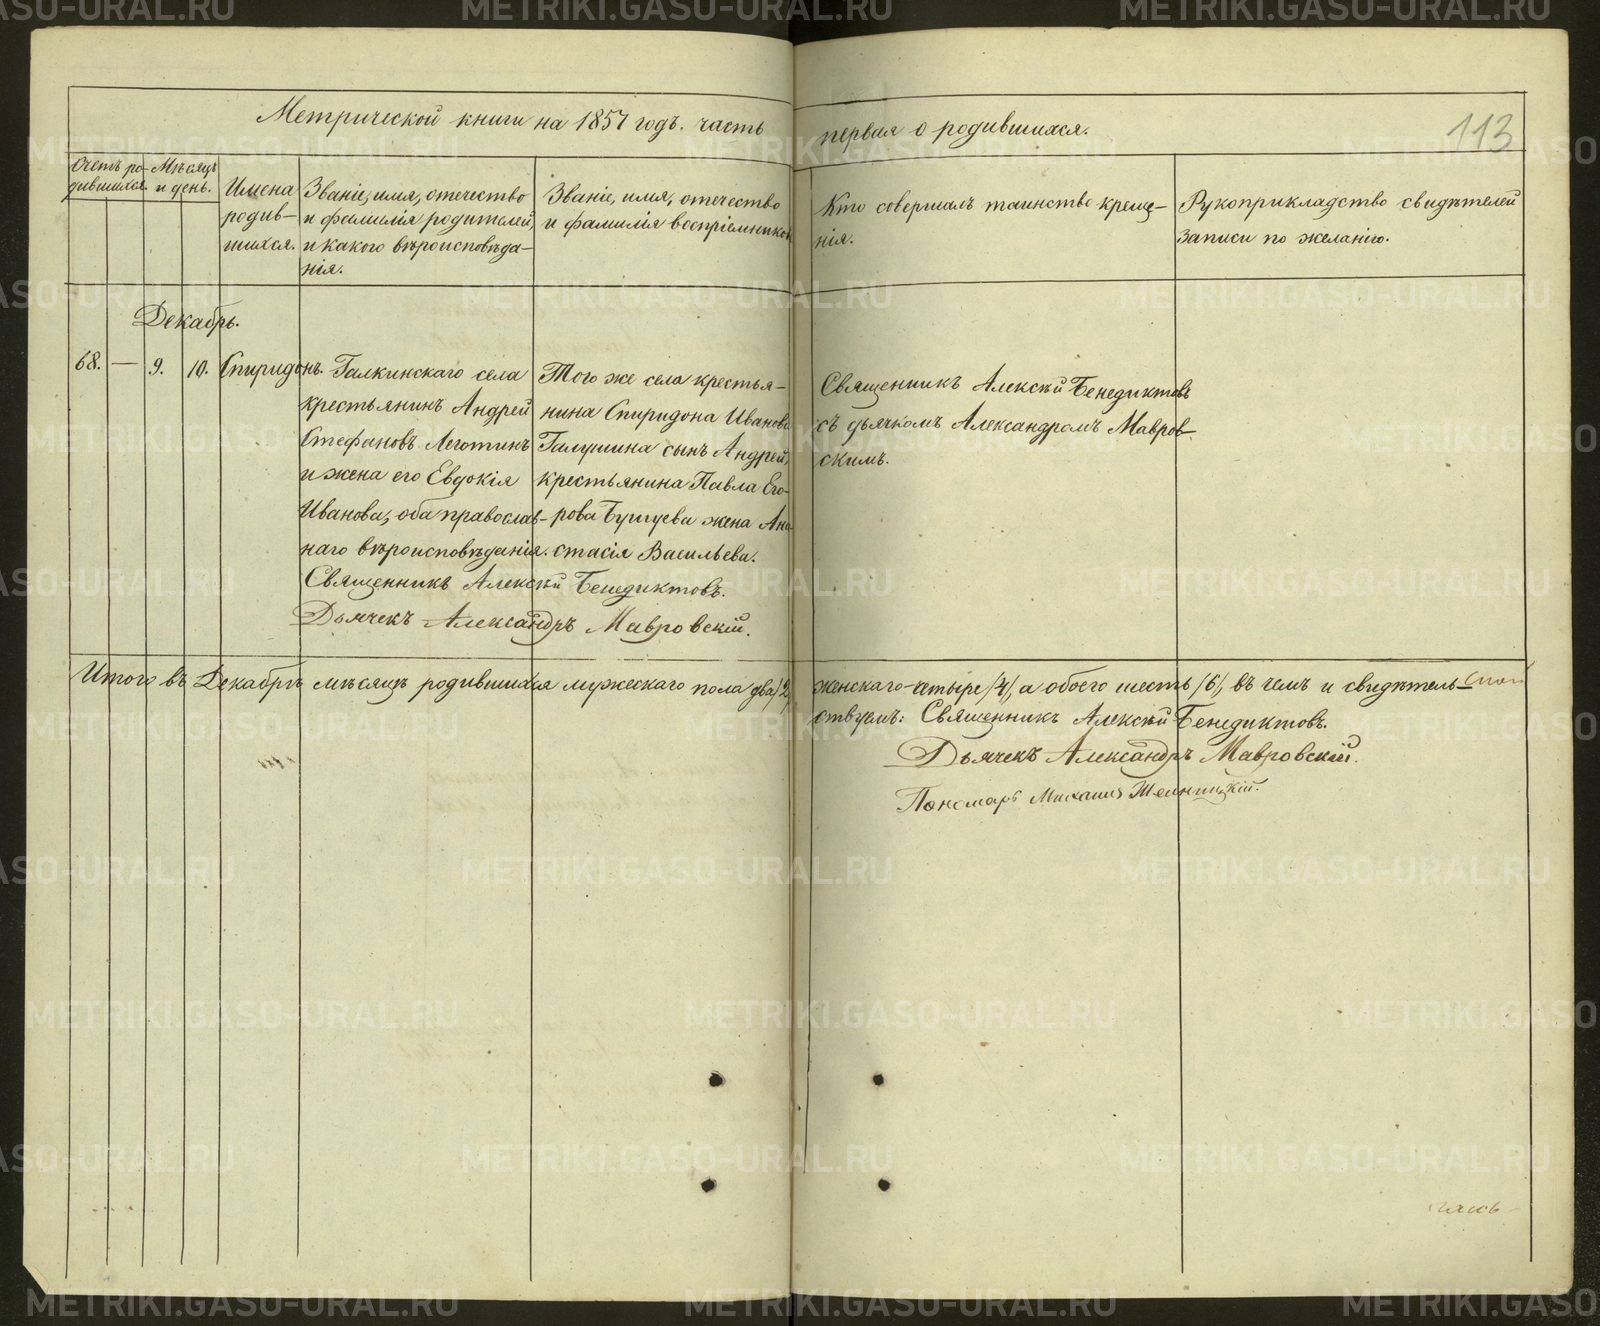 Метрической книги на 1857 годъ. часть первая о родившихся.
113
Счетъ ро-
дившихся.
Мѣсяцъ
и день.
Имена
родив-
шихся.
Званіе, имя, отечество
и фамилія родителей,
и какого вѣроисповѣда-
нія.
Званіе, имя, отечество
и фамилія воспріемниковъ
Кто совершалъ таинство креще-
нія.
Рукоприкладство свидѣтелей
записи по желанію.
Декабрь.
68. — 9. 10. Спиридонъ.
Галкинскаго села
крестьянинъ Андрей
Стефановъ Леготинъ
и жена его Евдокія
Иванова, оба православ-
наго вѣроисповѣданія.
Того же села крестья-
нина Спиридона Иванова
Галушина сынъ Андрей,
крестьянина Павла Его-
рова Бунгуева жена Ана-
стасія Васильева.
Священникъ Алексѣй Бенедиктовъ.
Дьячекъ Александръ Мавровскій.
Священникъ Алексѣй Бенедиктовъ
съ дьячкомъ Александромъ Мавров-
скимъ.
Итого въ Декабрѣ мѣсяцѣ родившихся мужескаго пола два /2/, женскаго-четыре /4/, а обоего шесть /6/, въ чемъ и свидѣтель-
ствуемъ: Священникъ Алексѣй Бенедиктовъ.
Дьячекъ Александръ Мавровскій.
Пономарь Михаилъ
METRIKI.GASO-URAL.RU